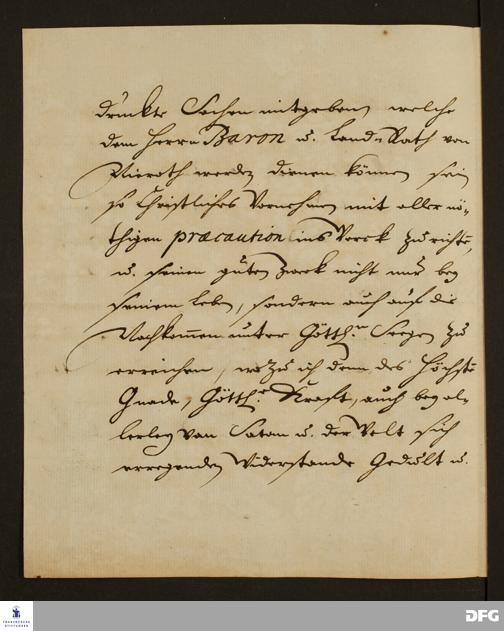 druckte Sachen mitgeben, welche
dem Herrn Baron u. Land-Rath von
Nieroth werden dienen können sein
so Christliches Vornehmen mit aller nö-
thigen præcaution ins Werck zu richte,
u. seinen guten Zweck nicht nur bey
seinem Leben, sondern auch auf die
Nachkommen unter Göttl.n Seegen zu
erreichen, wozu ich denn des Höchste
Gnade, Göttl.e Krafft, auch bey al-
lerley von Satan u. der Welt sich
erregenden Widerstande Gedult u.
FRANCKESCHE STIFTUNGEN
DFG